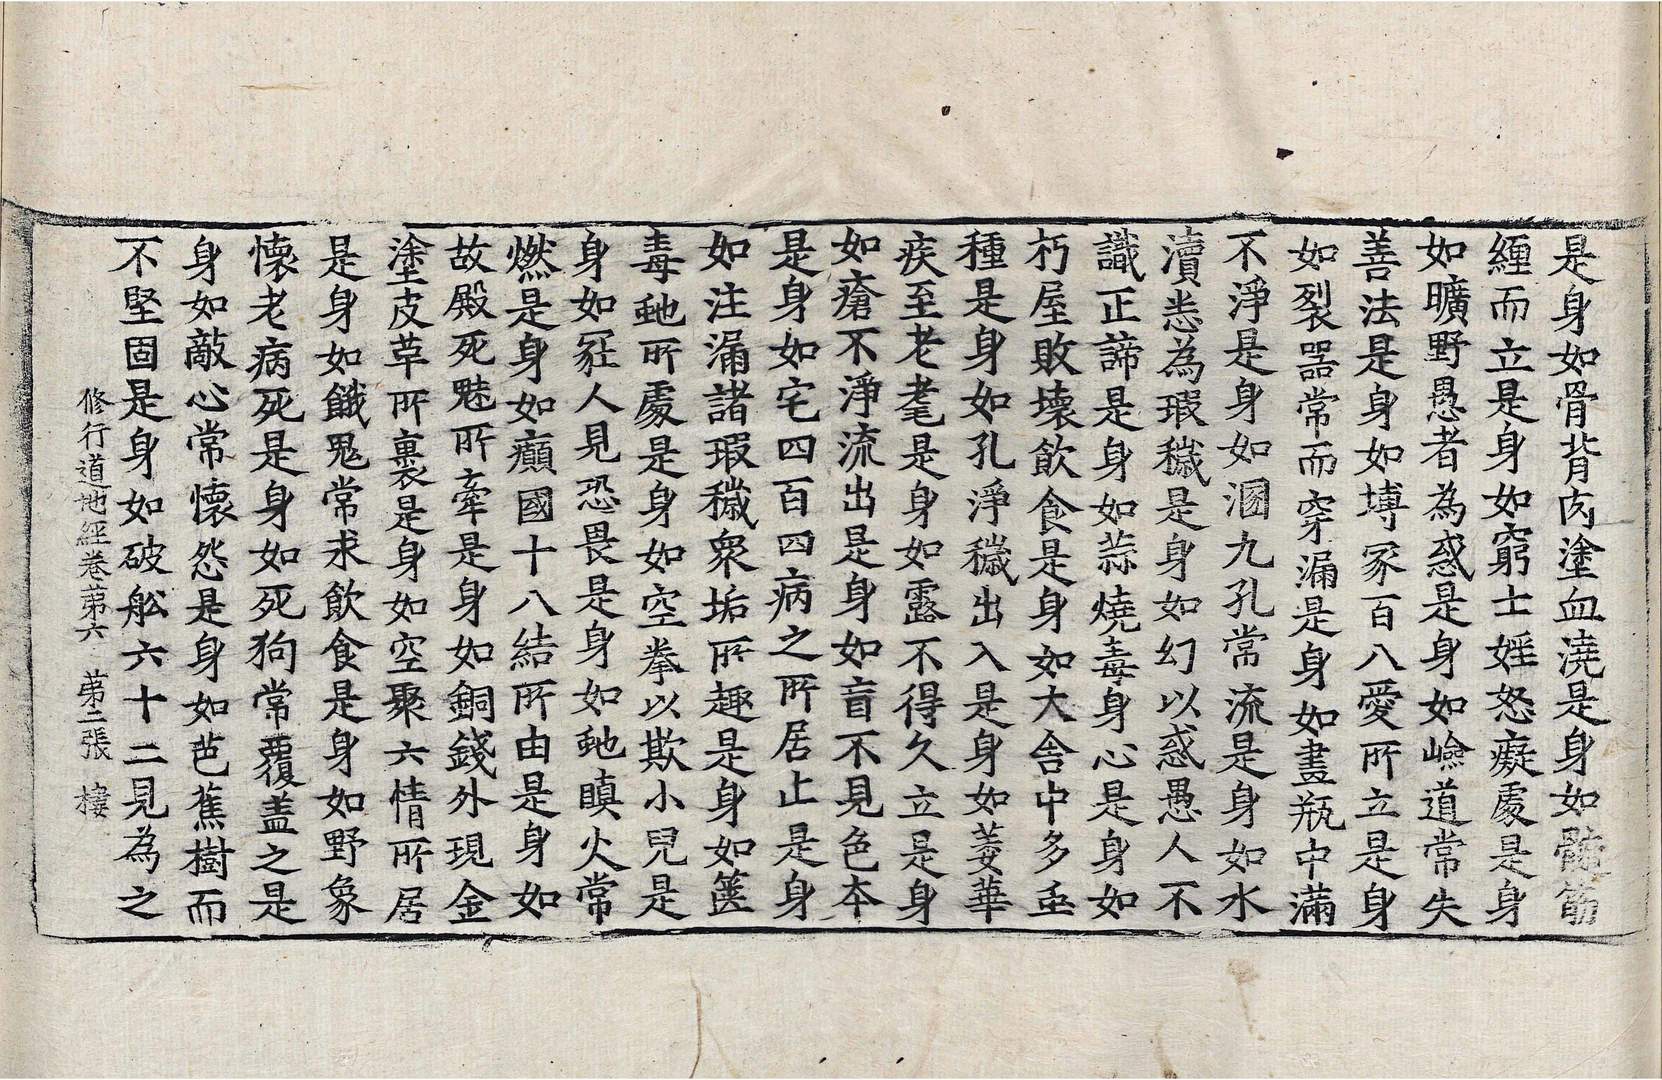 是身如骨背肉塗血澆是身如髓筋
纏而立是身如窮士婬怒癡處是身
如曠野愚者為惑是身如嶮道常失
善法是身如塼冢百八愛所立是身
如裂器常而穿漏是身如畫瓶中滿
不淨是身如溷九孔常流是身如水
瀆悉為瑕穢是身如幻以惑愚人不
識正諦是身如蒜燒毒身心是身如
朽屋敗壞飲食是身如大舍中多虫
種是身如孔淨穢出入是身如萎華
疾至老耄是身如露不得久立是身
如瘡不淨流出是身如盲不見色本
是身如宅四百四病之所居止是身
如注漏諸瑕穢衆垢所趣是身如篋
毒虵所處是身如空拳以欺小兒是
身如冢人見恐畏是身如虵瞋火常
燃是身如癲國十八結所由是身如
故殿死魅所牽是身如銅錢外現金
塗皮革所裹是身如空聚六情所居
是身如餓鬼常求飲食是身如野象
懷老病死是身如死狗常覆盖之是
身如敵心常懷怨是身如芭蕉樹而
不堅固是身如破舩六十二見為之
修行道地經卷苐六 苐二張 樓